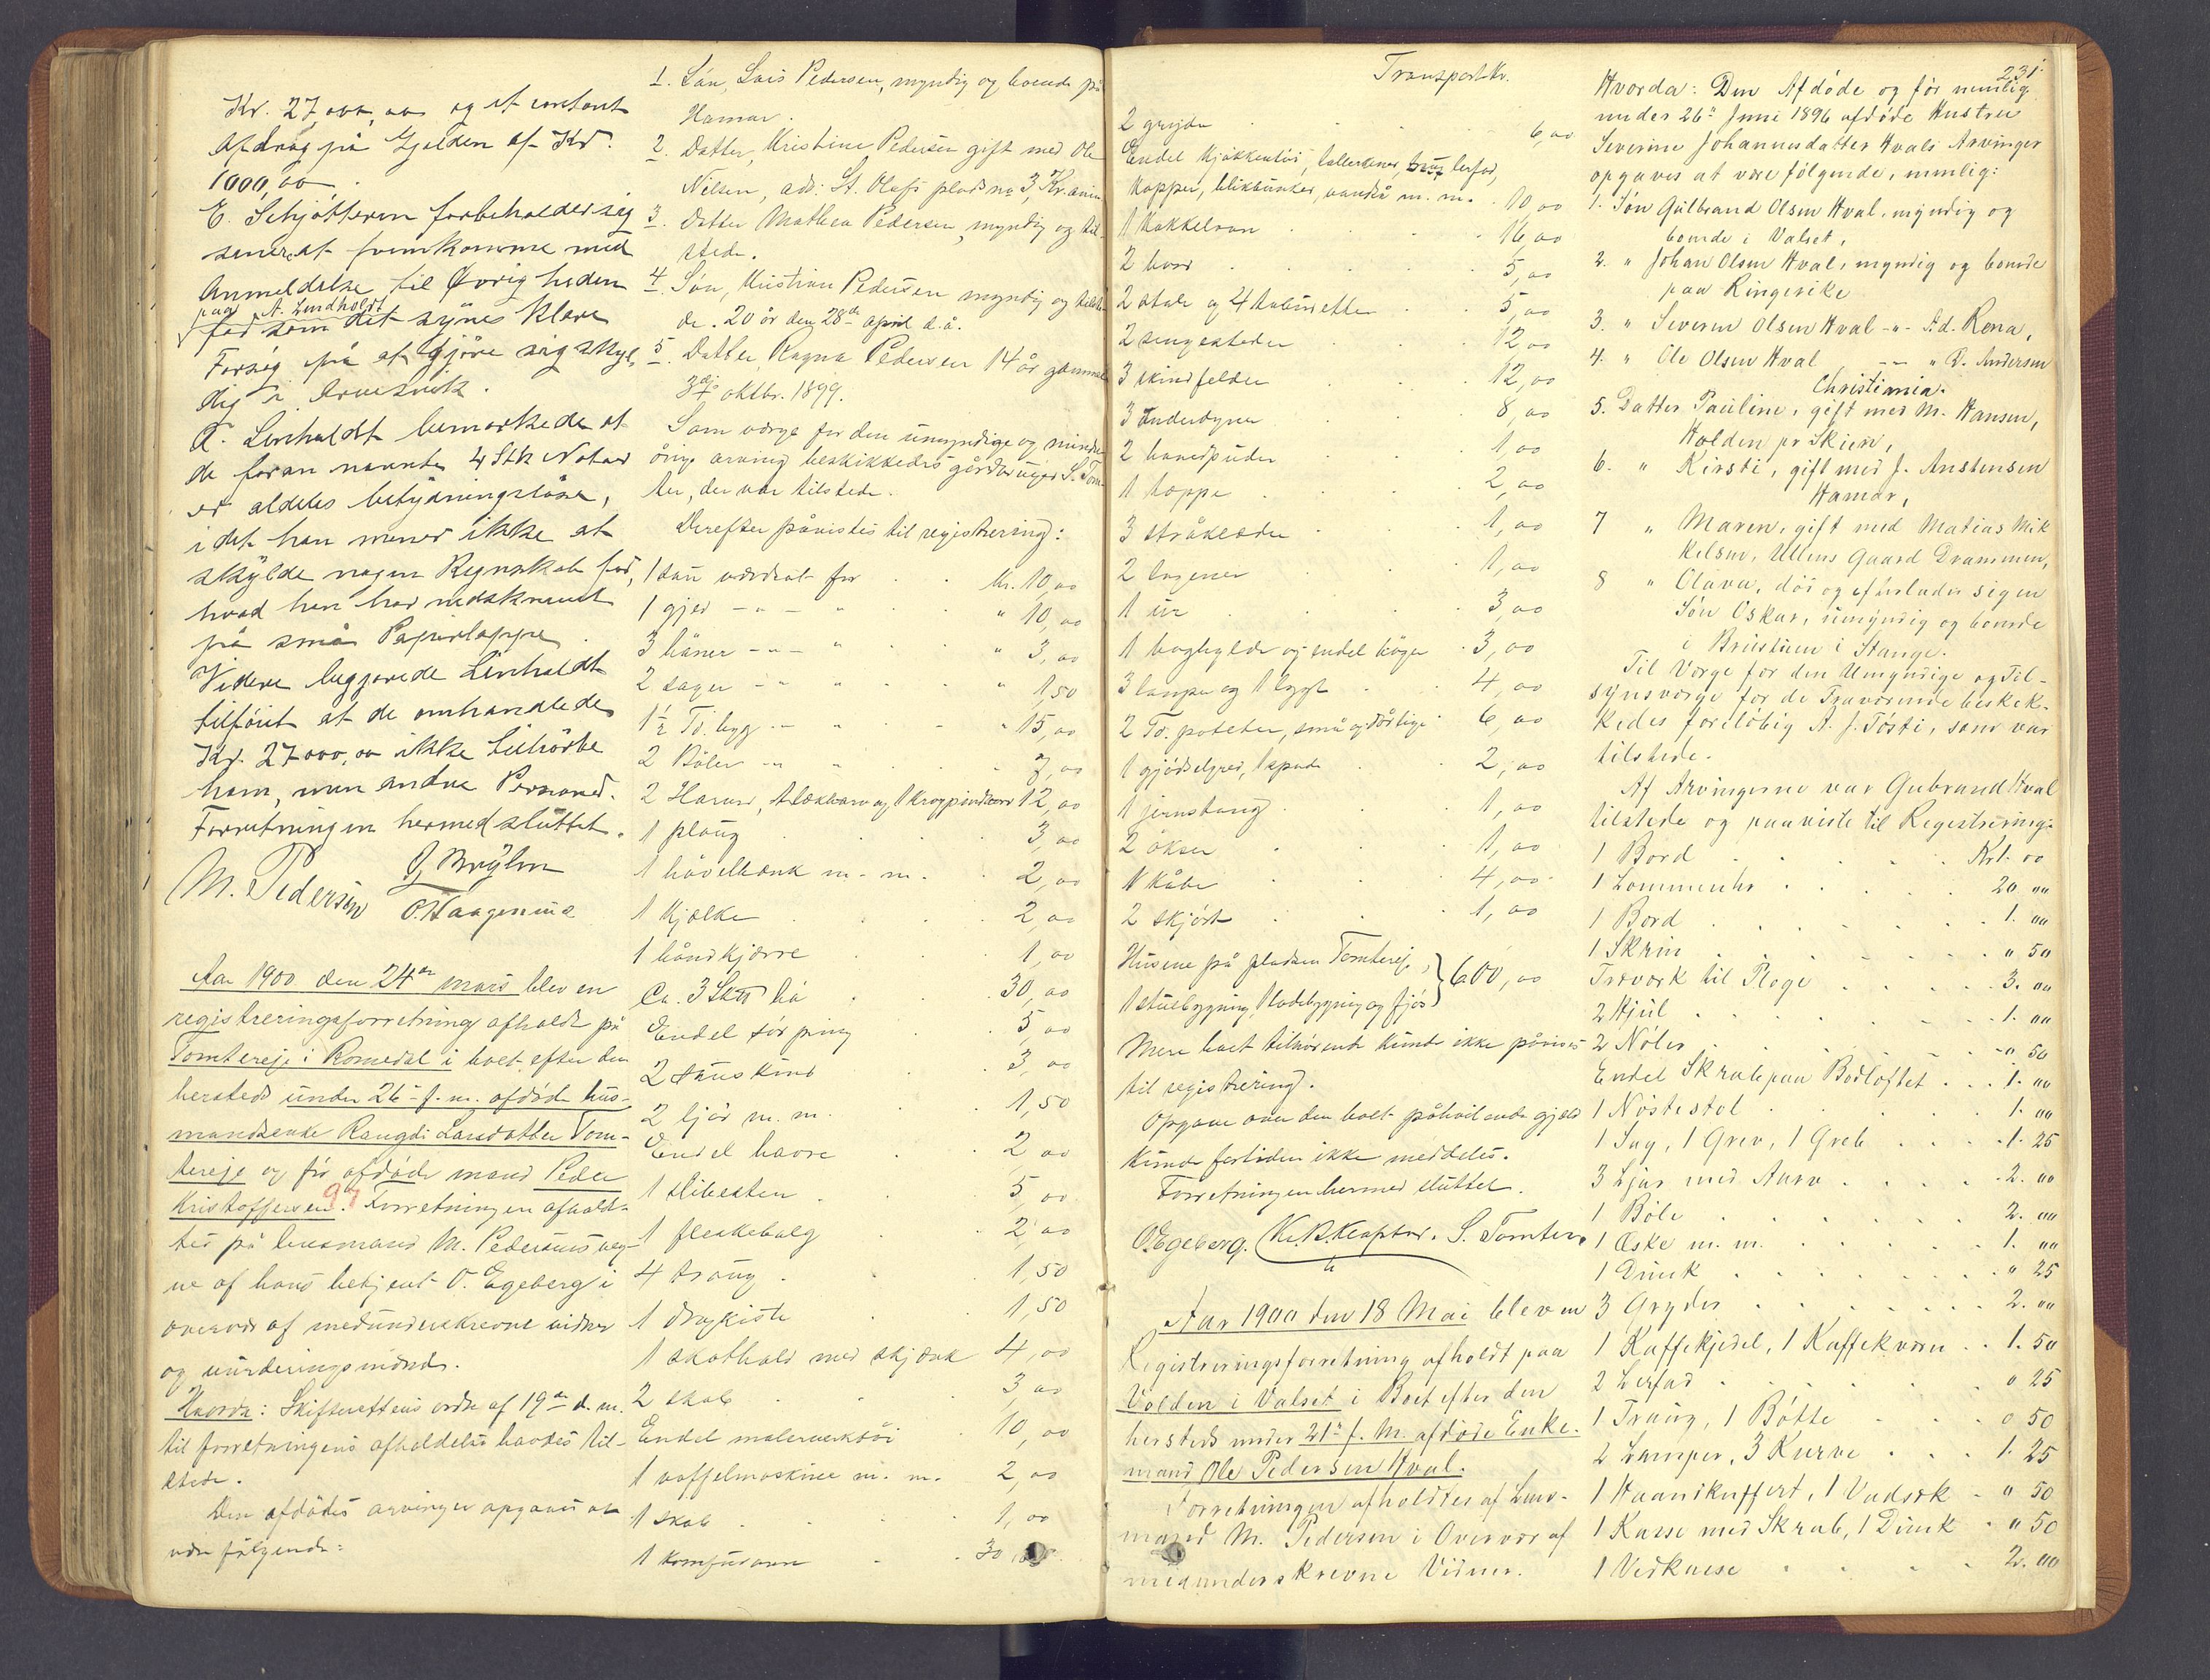 Kr. 27,000,00 og et contant
Afdrag på Gjelden af Kr.
1000,00.
E. Schjötteren forbeholder sig
senere at fremkomme med
Anmeldelse til Øvrigheden
paa A. Lindholdt
fad som det synes klare
Forsøg på at gjöre sig skyl-
dig i
A. Linholdt bemærkede at
de foran nævnte 4 Stk Notaer
er aldeles betydningsløse,
idet han mener ikke at
skylde nogen Regnskab for,
hvad han har nedskrevet
på små Papirlappe.
Videre begjærede Linholdt
tilføiet at de omhandlede
Kr. 27000,00 ikke tilhørte
ham, men andre Personer.
Forretningen hermed sluttet.
M. Pedersen
O. Haagensen
Aar 1900 den 24de mars blev en
registreringsforretning afholdt på
Tomtereje i Romedal i boet efter den
hersteds under 26 f. m. afdøde hus-
mandsenke Rangdi Larsdatter Tom-
tereje og før afdøde mand Peder
Kristoffersen. 97 Forretningen afhold-
tes på lensmand M. Pedersens veg-
ne af hans betjent O. Egeberg i
overvær af medunderskrevne vidner
og vurderingsmænd.
Hvorda: Skifterettens ordre af 19de d. m.
til forretningens afholdelse havdes til-
stede.
Den afdødes arvinger opgaves at
være følgende:
1. Søn, Lars Pedersen, myndig og boende på
Hamar.
2. Datter, Kristine Pedersen gift med Ole
Nilsen, adr: St. Olafs plads no 3, Kr.ania
3. Datter Mathea Pedersen, myndig og til-
stede.
4. Søn, Kristian Pedersen myndig og tilste-
de. 20 år den 28de april d. å.
5. Datter Ragna Pedersen 14 år gammel
3die oktbr. 1899.
Som værge for den umyndige og mindre-
årige arving beskikkedes gårdbruger S. Tom-
ter, der var tilstede.
Derefter påvistes til registrering:
1 sau værderet for kr. 10,00
1 gjed - " - " " 10,00
3 høner - " - " " 3,00
2 sager - " " " 1,50
1½ Td. byg - " " 15,00
2 Bøler - " " 7,00
2 Harver, 1 lækharv og 1 krogpindharv 12,00
1 ploug 3,00
1 høvelbænk m. m. 2,00
1 kjælke 2,00
1 håndkjærre 1,00
Ca. 3 Sktt hø 30,00
Endel tör ping 5,00
2 sauskind 3,00
2 ljår m. m. 1,50
Endel havre 2,00
1 slibesten 5,00
1 fleskebalg 2,00
4 traug 1,50
1 dragkiste 1,50
1 skathald med skjænk 4,00
2 skab 3,00
Endel malerverktøi 10,00
1 vaffelmaskine m. m. 2,00
1 skab 1,00
1 komfurovn 30,00
Transport Kr.
2 gryder 6,00
Endel kjøkkentøi, tallerkener, lerfad,
kopper, blikbunker, vandså m. m. 10,00
1 kakkelovn 16,00
2 bord 5,00
2 stole og 4 taburetter 5,00
2 sengesteder 12,00
3 skindfelder 12,00
3 underdyner 8,00
2 hovedputer 1,00
1 tæppe 2,00
3 stråkesder 1,00
2 lagener 1,00
1 ur 3,00
1 boghylde og endel bøger 3,00
3 lampe og 1 lygt 4,00
2 Td. poteter, små og dårlige 6,00
1 gjødselgreb, 1 spade 2,00
1 jernstang 1,00
2 økser 1,00
1 kåbe 4,00
2 skjørt 1,00
Husene på pladsen Tomtereje,
1 stuebygning, 1 ladebygning og fjøs } 600,00
Mere boet tilhørende kunde ikke påvises
til registrering.
Opgave over den boet påhvilende gjæld
kunde fortiden ikke meddeles.
Forretningen hermed sluttet.
O. Egeberg. S. Tomter.
Aar 1900 den 18 Mai blev en
Registreringsforretning afholdt paa
Volden i Valset i Boet efter den
hersteds under 21de f. M. afdøde Enke-
mand Ole Pedersen Hval.
Forretningen afholdtes af Lens-
mand M. Pedersen i Overvær af
medunderskrevne Vidner.
231
Hvorda: Den Afdøde og før nemlig
under 26de Juni 1896 afdøde Hustru
Severine Johannesdatter Hvals Arvinger
opgaves at være følgende, nemlig:
1. Søn Gulbrand Olsen Hval, myndig og
boende i Valset,
2. " Johan Olsen Hval, myndig og boende
paa Ringerike
3. " Severin Olsen Hval - " - Ad. Rena,
4. " Ole Olsen Hval - - " D. Andersen
Christiania.
5. Datter Pauline, gift med M. Hansen,
Holden pr Skien,
6. " Kirsti, gift med J. Anstensen
Hamar,
7 " Maren, gift med Matias Mik
kelsen, Ullens Gaard Drammen,
8 " Olava, død og efterlader sig en
Søn Oskar, umyndig og boende
i Brustuen i Stange.
Til Værge for den Umyndige og Til-
synsværge for de Fraværende beskik-
kedes foreløbig A. J. Tøsti, som var
tilstede.
Af Arvingerne var Gubrand Hval
tilstede og paaviste til Registrering:
1 Bord Kr 1. 00
1 Lommeuhr 20. 00
1 Bord 1. 00
1 Skrin " 50
Træværk til Ploge 3. 00
2 Hjul 1. 00
2 Nøler " 50
Endel Skrab paa Bodloftet 1. 00
1 Nøstestol 1. 00
1 Sag, 1 Grev, 1 Greb 1. 25
3 Ljår med Aarv 2. 00
1 Bøle 2. 00
1 Æske m. m. 1. 00
1 Dunk " 25
3 Gryder 2. 00
1 Kaffekjedel, 1 Kaffekværn 1. 50
2 Lerfad 0 25
1 Traug, 1 Bøtte 0 50
2 Lamper, 3 Kurve 1. 25
1 Haandkuffert, 1 Vadsæk " 50
1 Kasse med Skrab, 1 Dunk " 50
1 Vedkasse 2. 00